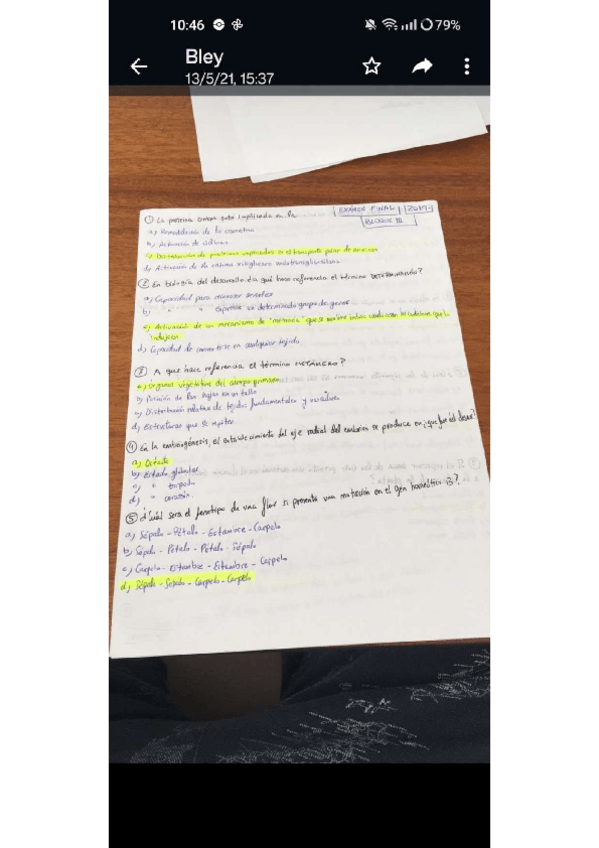 10:46
79%
Bley
13/5/21, 15:37
EXAMEN FINAL 2019
BLOQUE III
① La proteína GNOM está implicada en la
a) Remodelación de la cromatina
b) Activación de ciclinas
c) Distribución de proteínas implicadas en el transporte polar de auxinas
d) Activación de la enzima xiloglucano endotransglucosilasa
② En biología del desarrollo ¿a qué hace referencia el término DETERMINADO?
a) Capacidad para
b) " " expresar un determinado grupo de genes
c) Activación de un mecanismo de "memoria" que se mantiene incluso cuando cesan las condiciones que lo
indujeron
d) Capacidad de convertirse en cualquier tejido
③ A que hace referencia el término METÁMERO?
a) Órgano vegetativo del cuerpo primario
b) Posición de las hojas en un tallo
c) Distribución relativa de tejidos fundamentales y vasculares
d) Estructuras que se repiten
④ En la embriogénesis, el establecimiento del eje radial del embrión se produce en ¿que fase del desar?
a) Octante
b) Estado globular
c) " torpedo
d) " corazón.
⑤ ¿Cuál será el fenotipo de una flor si presenta una mutación en el gen homeótico B?
a) Sépalo - Pétalo - Estambre - Carpelo
b) Sépalo - Pétalo - Pétalo - Sépalo
c) Carpelo - Estambre - Estambre - Carpelo
d) Sépalo - Sépalo - Carpelo - Carpelo